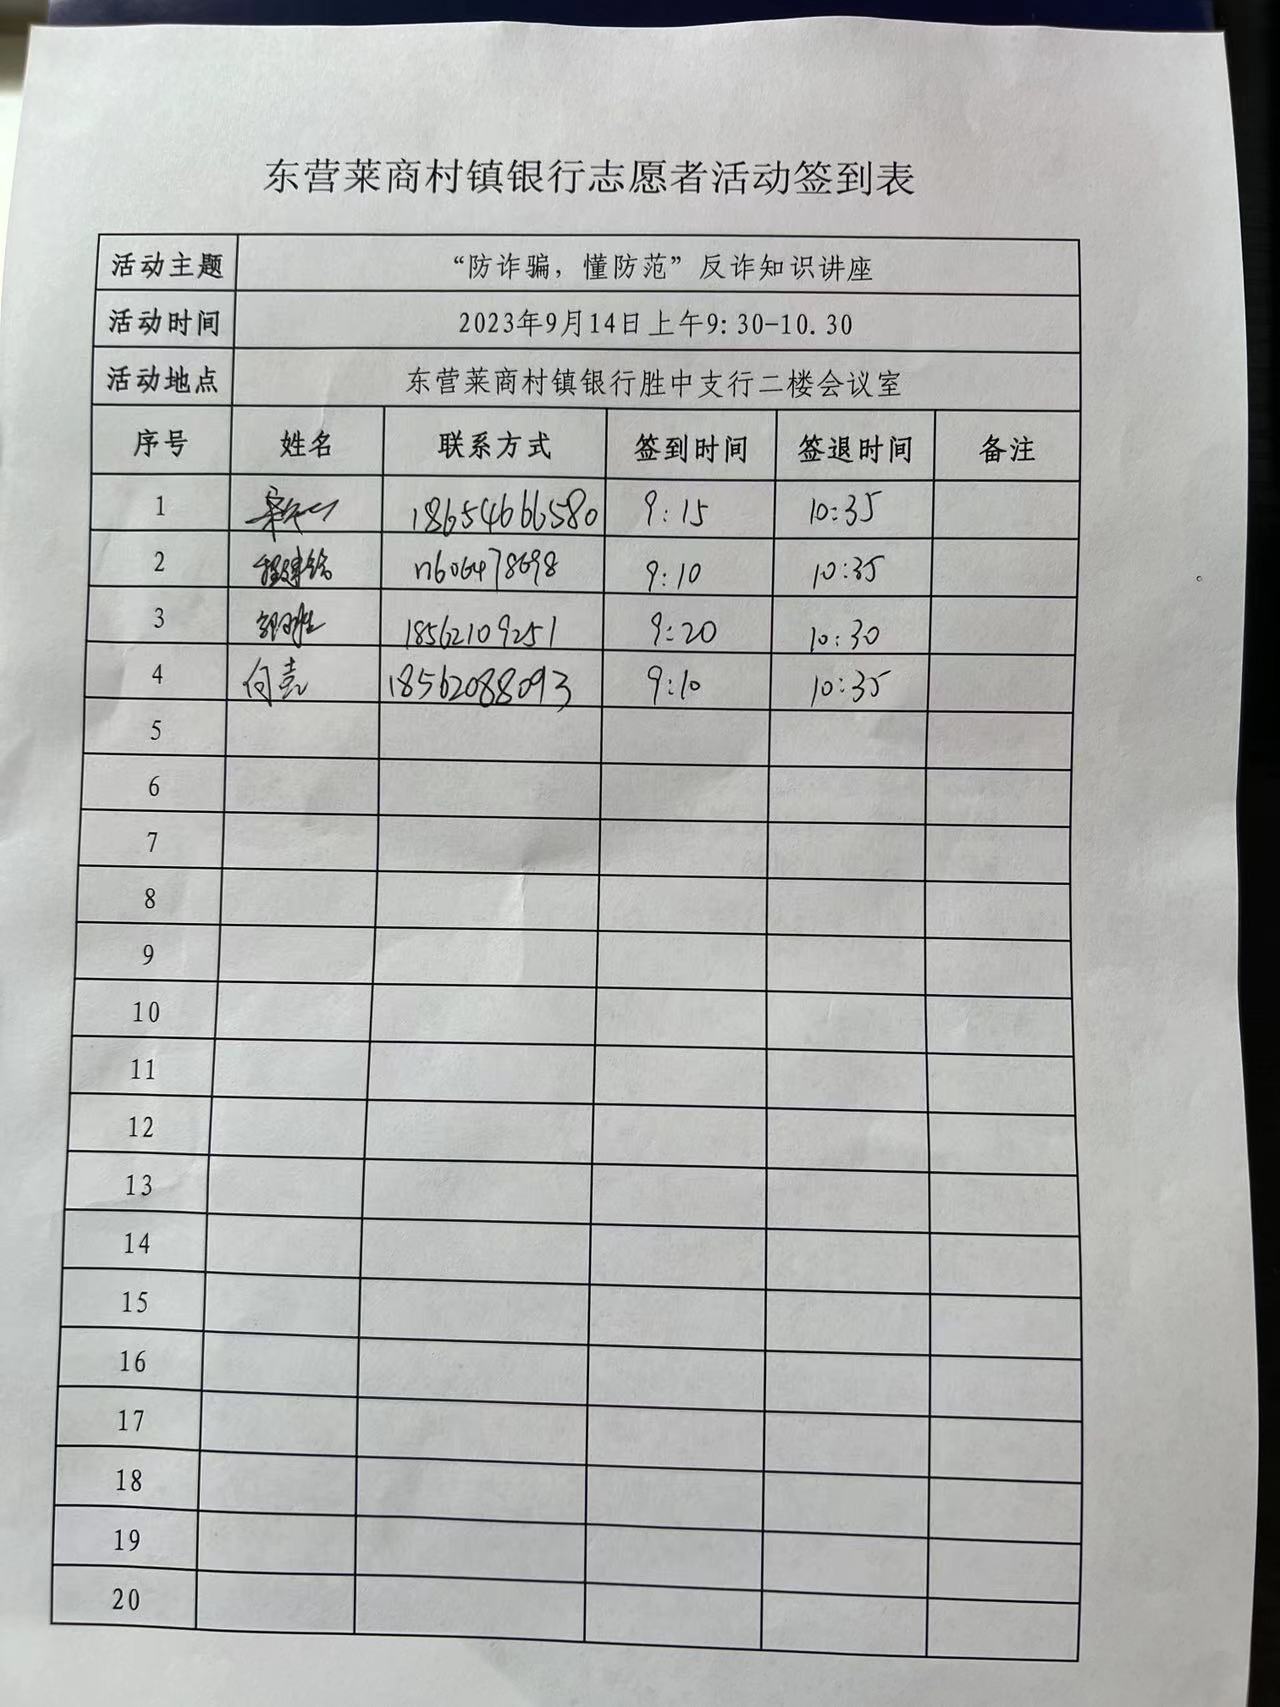 东营莱商村镇银行志愿者活动签到表
活动主题 “防诈骗，懂防范”反诈知识讲座
活动时间 2023年9月14日上午9:30-10.30
活动地点 东营莱商村镇银行胜中支行二楼会议室
序号 姓名 联系方式 签到时间 签退时间 备注
1 18654666580 9:15 10:35
2 17606478698 9:10 10:35
3 18562109251 9:20 10:30
4 18562088093 9:10 10:35
5
6
7
8
9
10
11
12
13
14
15
16
17
18
19
20